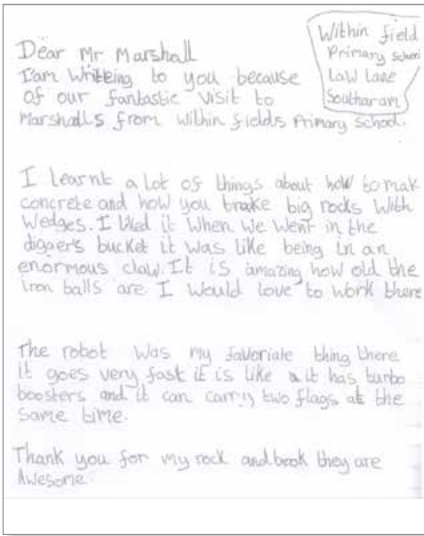 Within field
Primary school
Law Lane
Southaram
Dear Mr Marshall
I'am Writteing to you because
of our fantastic visit to
Marshalls from Within fields Primary School.
I learnt a lot of things about how to mak
concrete and how you brake big rocks With
Wedges. I liked it When We Went in the
digger's bucket it was like being in an
enormous claw. It is amazing how old the
iron balls are I Would love to work there
The robot Was my favoriate thing there
it goes very fast it is like it has turbo
boosters and it can carry two flags at the
same time.
Thank you for my rock and book they are
AWesome.